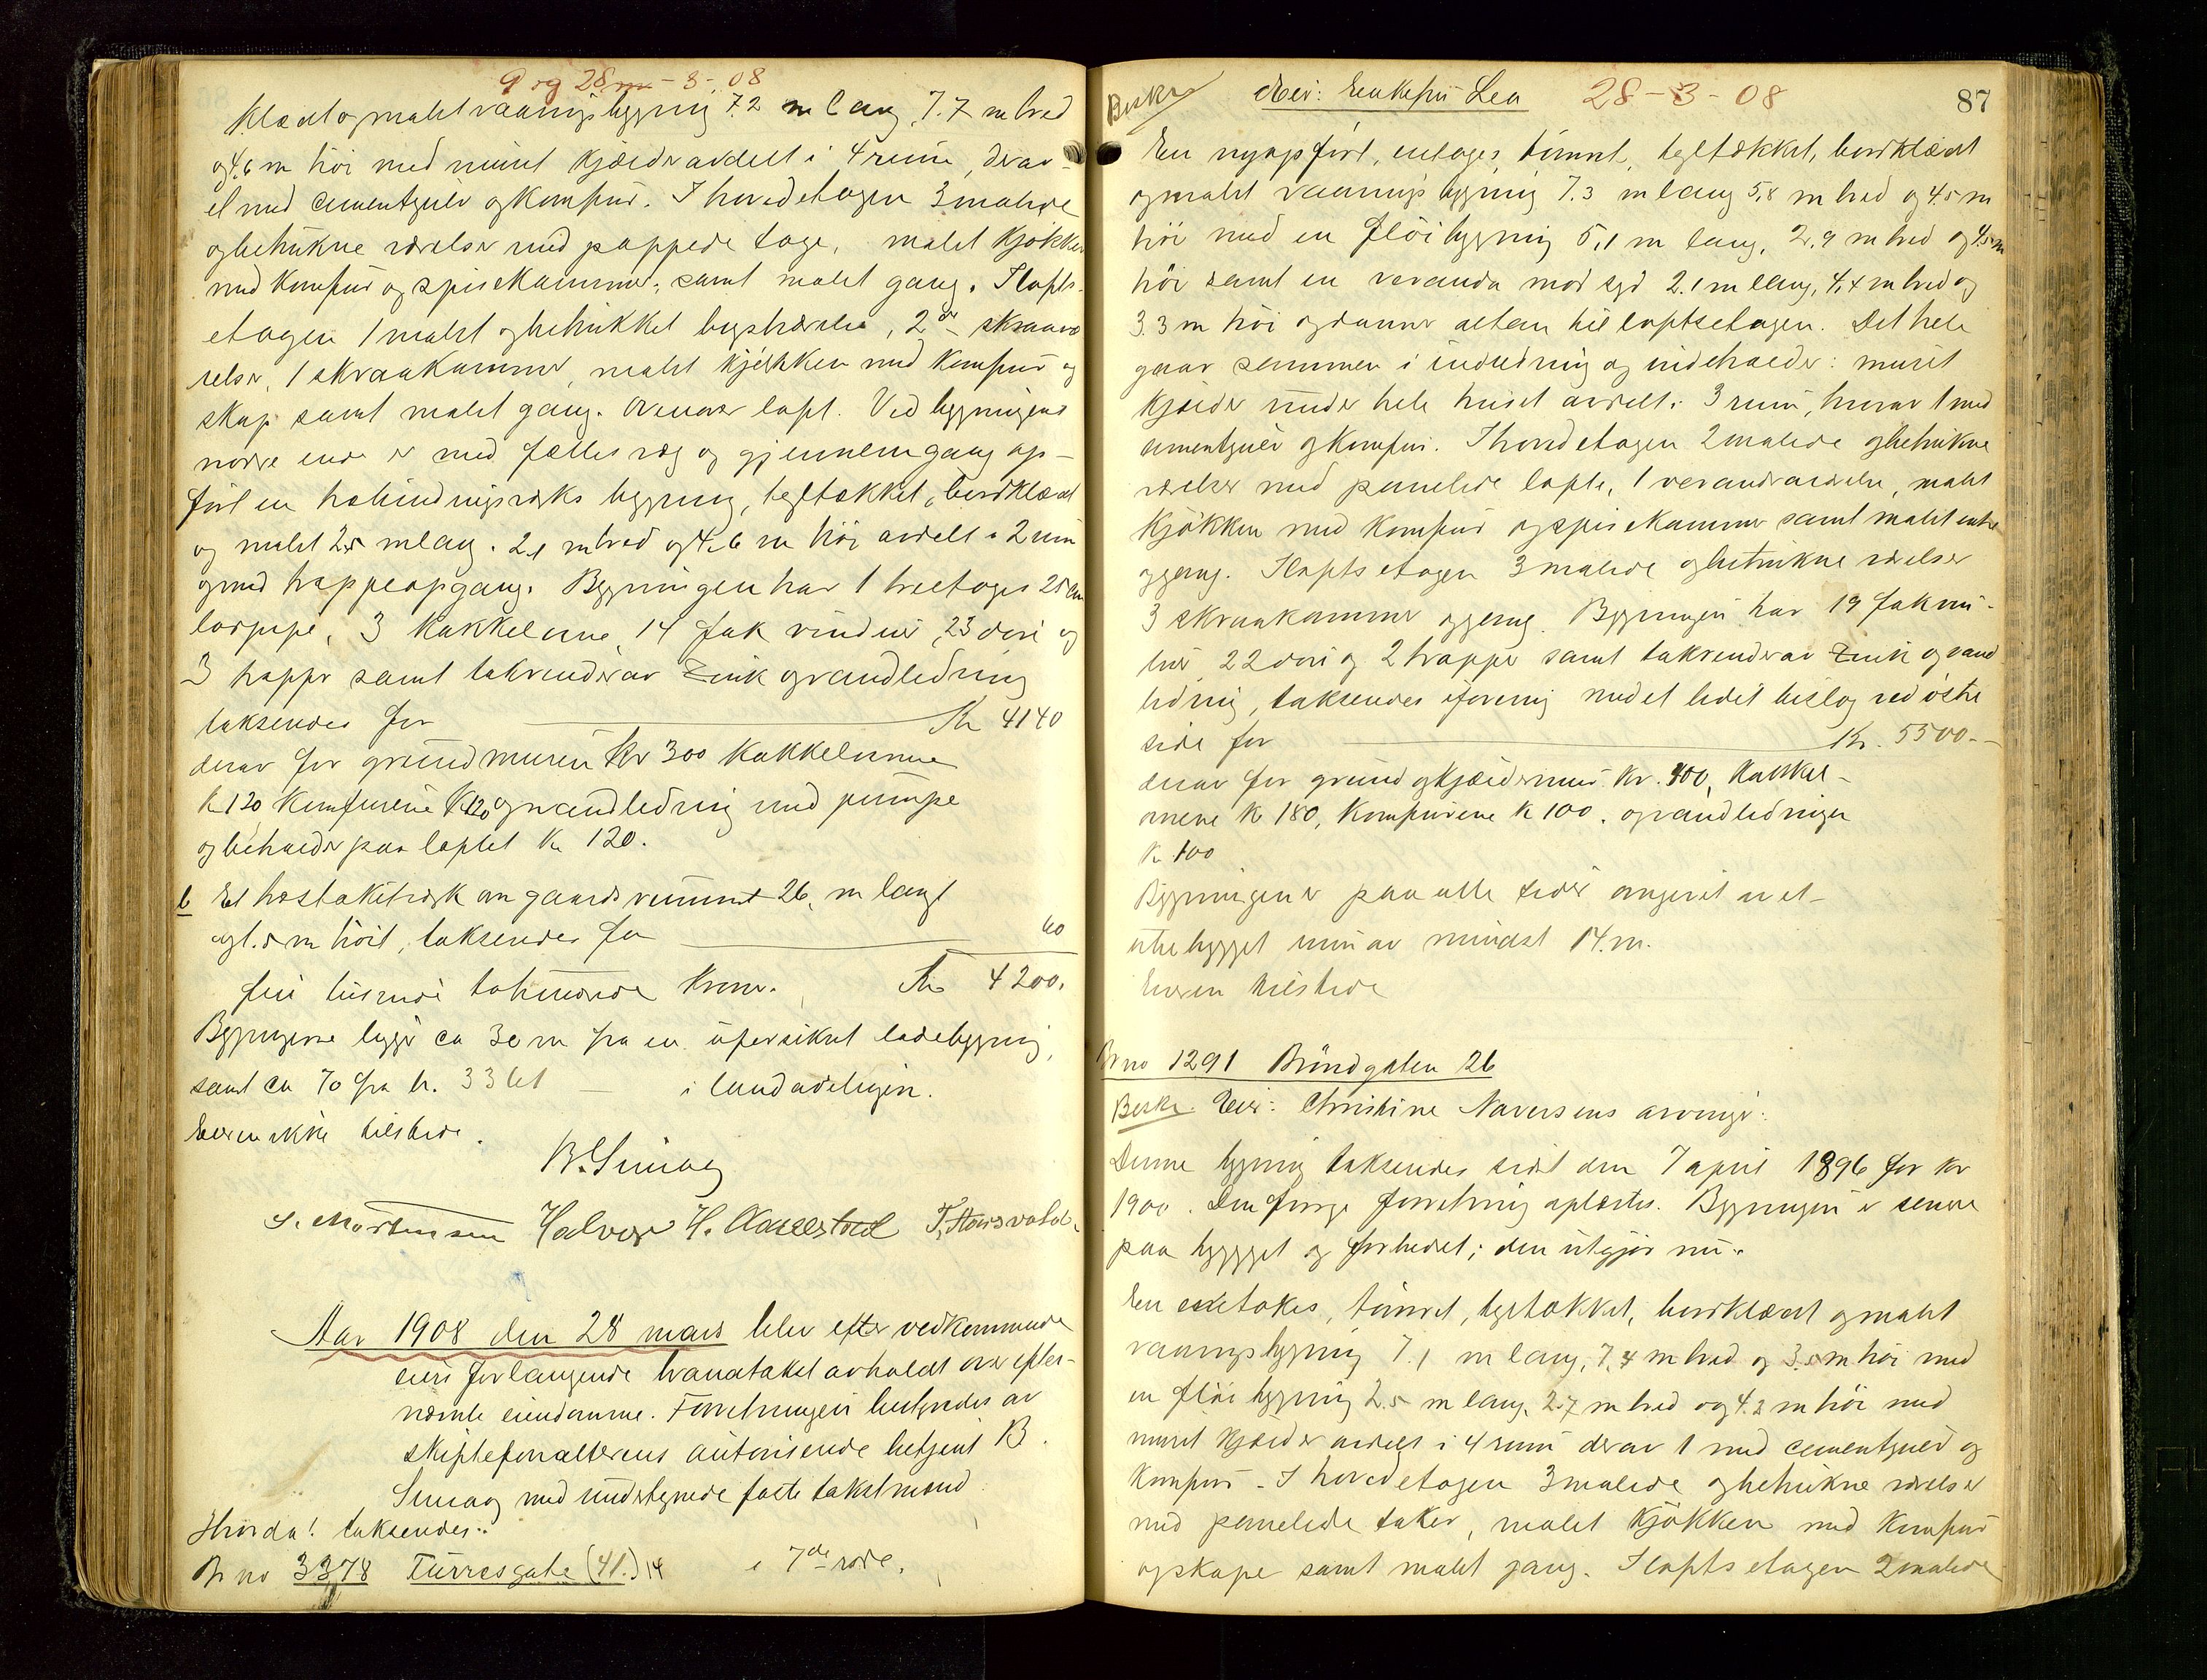 9 og 28 m - 3 - 08
klædt og malet vaaningsbygning 7.2 m lang, 7.7 m bred
og 4.6 m höi med muret kjælder avdelt i 4 rum, derav
et med cementgulv og komfur. I hovedetagen 3 malede
og betrukne værelser med pappede tage, malet kjökken
med komfur og spisekammer, samt malet gang. I lofts-
etagen 1 malet og betrukket kvistværelse, 2 de skraavæ
relser, 1 skraakammer, malet kjökken med komfur og
skap samt malet gang. Ovenover loft. Ved bygningens
nordre ende er med fælles væg og gjennemgang op-
fört en bygning, tegltækket, bordklædt
og malet 2.5 m lang. 2.1 m bred og 4.6 m höi avdelt i 2 rum
og med trappeopgang. Bygningen har 1 toetages 25 cm
lospipe, 3 kakkelovne, 14 fak vinduer, 23 döre og
3 trapper samt takrender av zink og vandledning
taksendes for Kr 4140
derav for grundmuren Kr 300 kakkelovnene
kr 120 komfurene Kr 120 og vandledning med pumpe
og beholder paa loftet kr 120.
b Et om gaardsrummet 26, m langt
og 1.5 m höit, taksendes for 60
fire tusinde tohundrede kroner. Kr 4200.
Bygningerne ligger ca 30 m fra en uforsikret ladebygning,
samt ca 70 fra br. 33 bt i landavdelingen.
Eieren ikke tilstede.
B. Simag
S. Mortensen Halvor H. Aarrestad T. Horsvold.
Aar 1908 den 28 mars blev efter vedkommende
eiers forlangende branntakst avholdt over efter-
nævnte eiendomme. Forretningen bestyredes av
skifteforvalterens autoriserede betjent B.
Simag med undertegnede faste takstmænd.
Hvorda! taksendes:
Br no 3378 Turresgate (41.) 14 i 7de rode.
87
Beskr. Eier: Enkefru Lea 28 - 3 - 08
En nyopfört, entages tömret, tegltækket, bordklædt
og malet vaaningsbygning 7.3 m lang 5,8 m bred og 4.5 m
höi med en flöibygning 5,1 m lang, 2,9 m bred og 4.5 m
höi samt en veranda mod syd 2.1 m lang, 4,4 m bred og
3.3 m höi og danner altan til loftsetagen. Det hele
gaar sammen i indredning og indeholder: muret
kjælder under hele huset avdelt i 3 rum, hvorav 1 med
cementgulv og komfur. I hovedetagen 2 malede og betrukne
værelser med panelede lofte, 1 verandaværelse, malet
kjökken med komfur og spisekammer samt malet entre
og gang. I loftsetagen 3 malede og betrukne værelser
3 skraakammer og gang. Bygningen har 19 fak vin-
duer 22 döre og 2 trapper samt takrender av zink og vand
ledning, taksendes iforening med et lidet bislag ved östre
side for Kr. 5500.-
derav for grund og kjældermur kr. 400, kakkel-
ovnene kr 180, komfurene kr 100. og vandledningen
kr 100
Bygningen er paa alle sider omgivet av et
ubebygget rum av mindst 14. m.
Eieren tilstede
Br no 1291 Bröndgaten 26
Beskr. Eier: Christine Naversens arvinger.
Denne bygning taksendes sidst den 7 april 1896 for kr
1900. Den forrige forretning oplæstes. Bygningen er senere
paabygget og forbedret; den utgjör nu:
En etakes, tömret, tegltækket, bordklædt og malet
vaaningsbygning 7.1 m lang, 7,4 m bred og 3.5 m höi med
en flöibygning 2.5 m lang, 2.7 m bred og 4.2 m höi med
muret kjælder avdelt i 4 rum derav 1 med cementgulv og
komfur. I hovedetagen 3 malede og betrukne værelser
med panelede taker, malet kjökken med komfur
og skape samt malet gang. I loftsetagen 2 malede